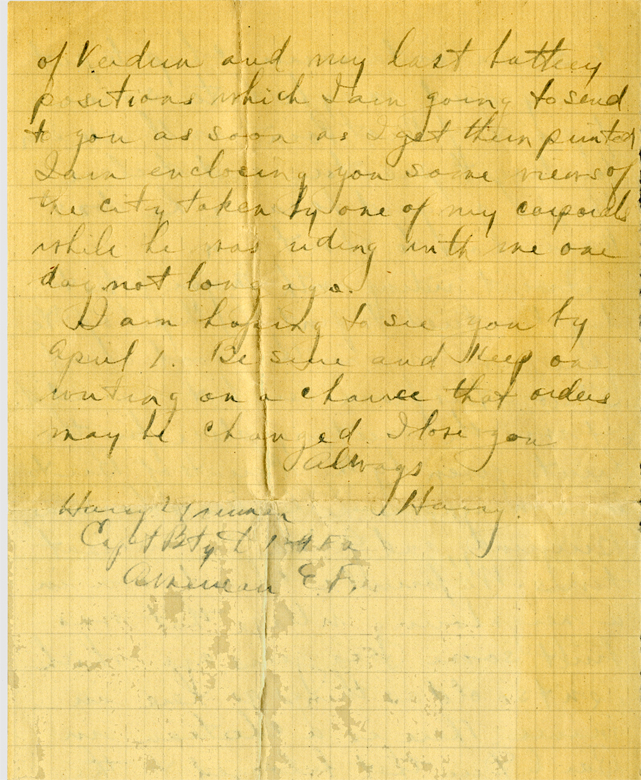 of Verdun and my last battery
positions which I am going to send
to you as soon as I get them printed
I am enclosing you some views of
the city taken by one of my corporals
while he was riding with me one
day not long ago.
I am hoping to see you by
April 1. Be sure and keep on
writing on a chance that orders
may be changed. I love you
Always
Harry.
Harry S Truman
Capt Bty D 129 FA
American E F.